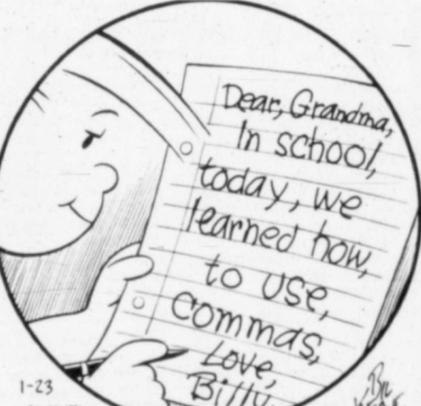 Dear, Grandma,
In school,
today, we
learned how,
to use,
Commas,
Love,
Billy
1-23